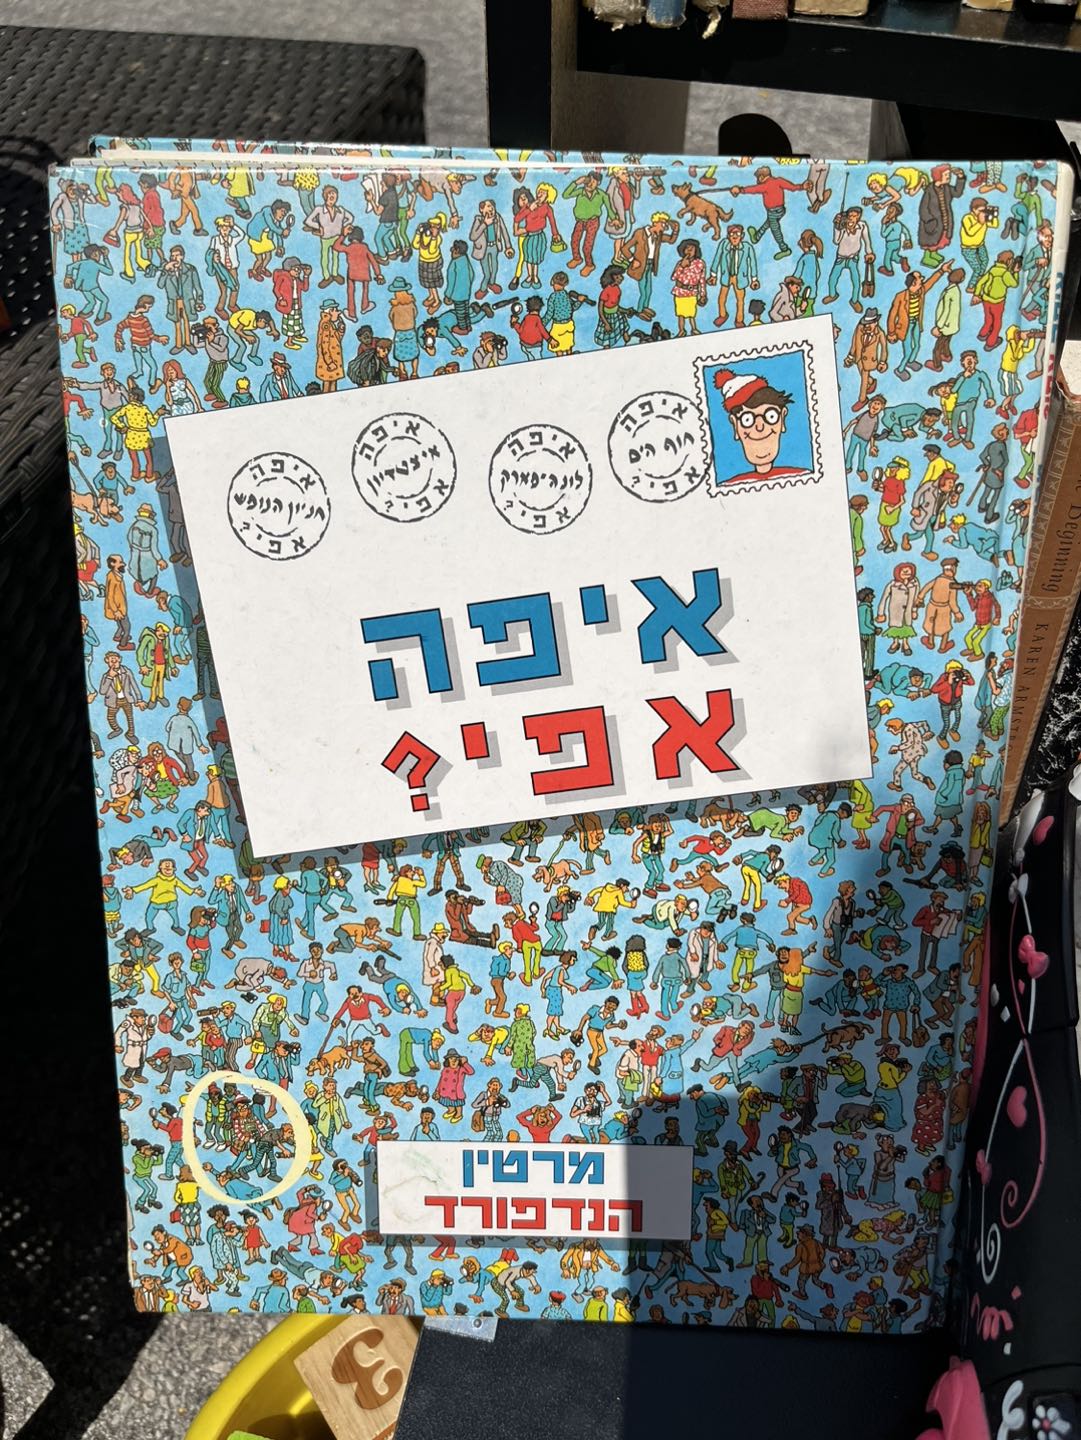 איפה
חניון הנופש
אפי?
איפה
איצטדיון
אפי?
איפה
לונה-פארק
אפי?
איפה
חוף הים
אפי?
איפה
אפי?
מרטין
הנדפורד
Beginning
KAREN ARMSTRO